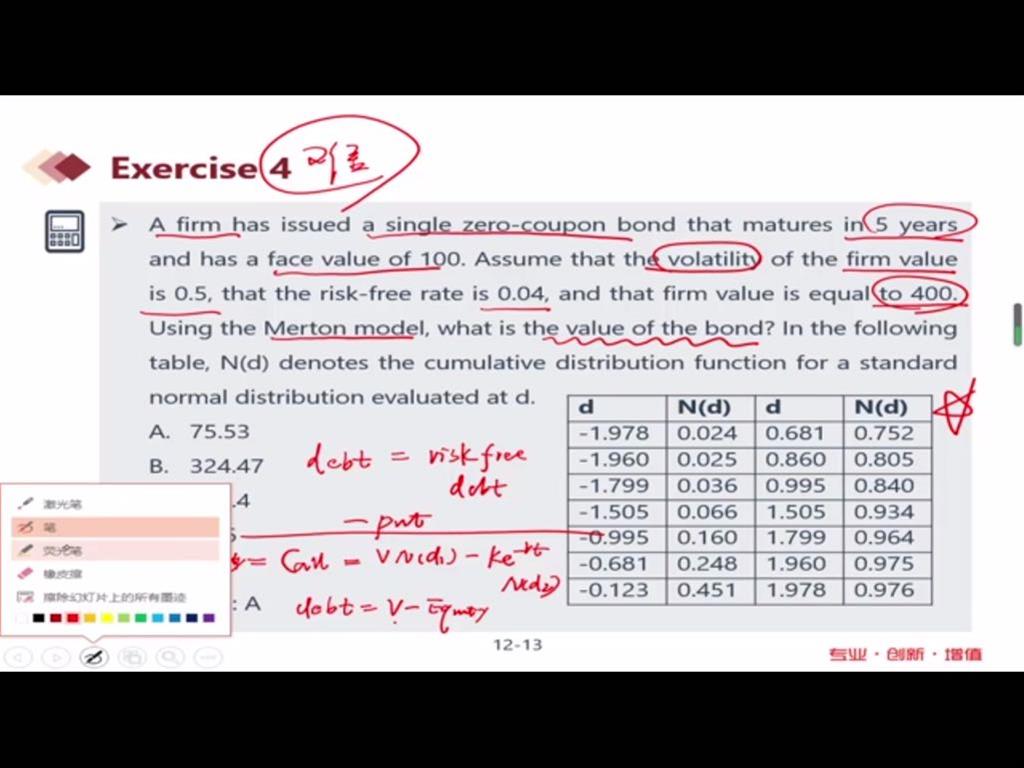 Exercise 4
A firm has issued a single zero-coupon bond that matures in 5 years
and has a face value of 100. Assume that the volatility of the firm value
is 0.5, that the risk-free rate is 0.04, and that firm value is equal to 400.
Using the Merton model, what is the value of the bond? In the following
table, N(d) denotes the cumulative distribution function for a standard
normal distribution evaluated at d.
A. 75.53
B. 324.47
.4
5
: A
debt = risk free
debt
- put
= Call = V N(d1) - Ke^-rt
N(d2)
debt = V - Equity
d N(d) d N(d)
-1.978 0.024 0.681 0.752
-1.960 0.025 0.860 0.805
-1.799 0.036 0.995 0.840
-1.505 0.066 1.505 0.934
-0.995 0.160 1.799 0.964
-0.681 0.248 1.960 0.975
-0.123 0.451 1.978 0.976
激光笔
笔
荧光笔
橡皮擦
擦除幻灯片上的所有墨迹
12-13
专业·创新·增值